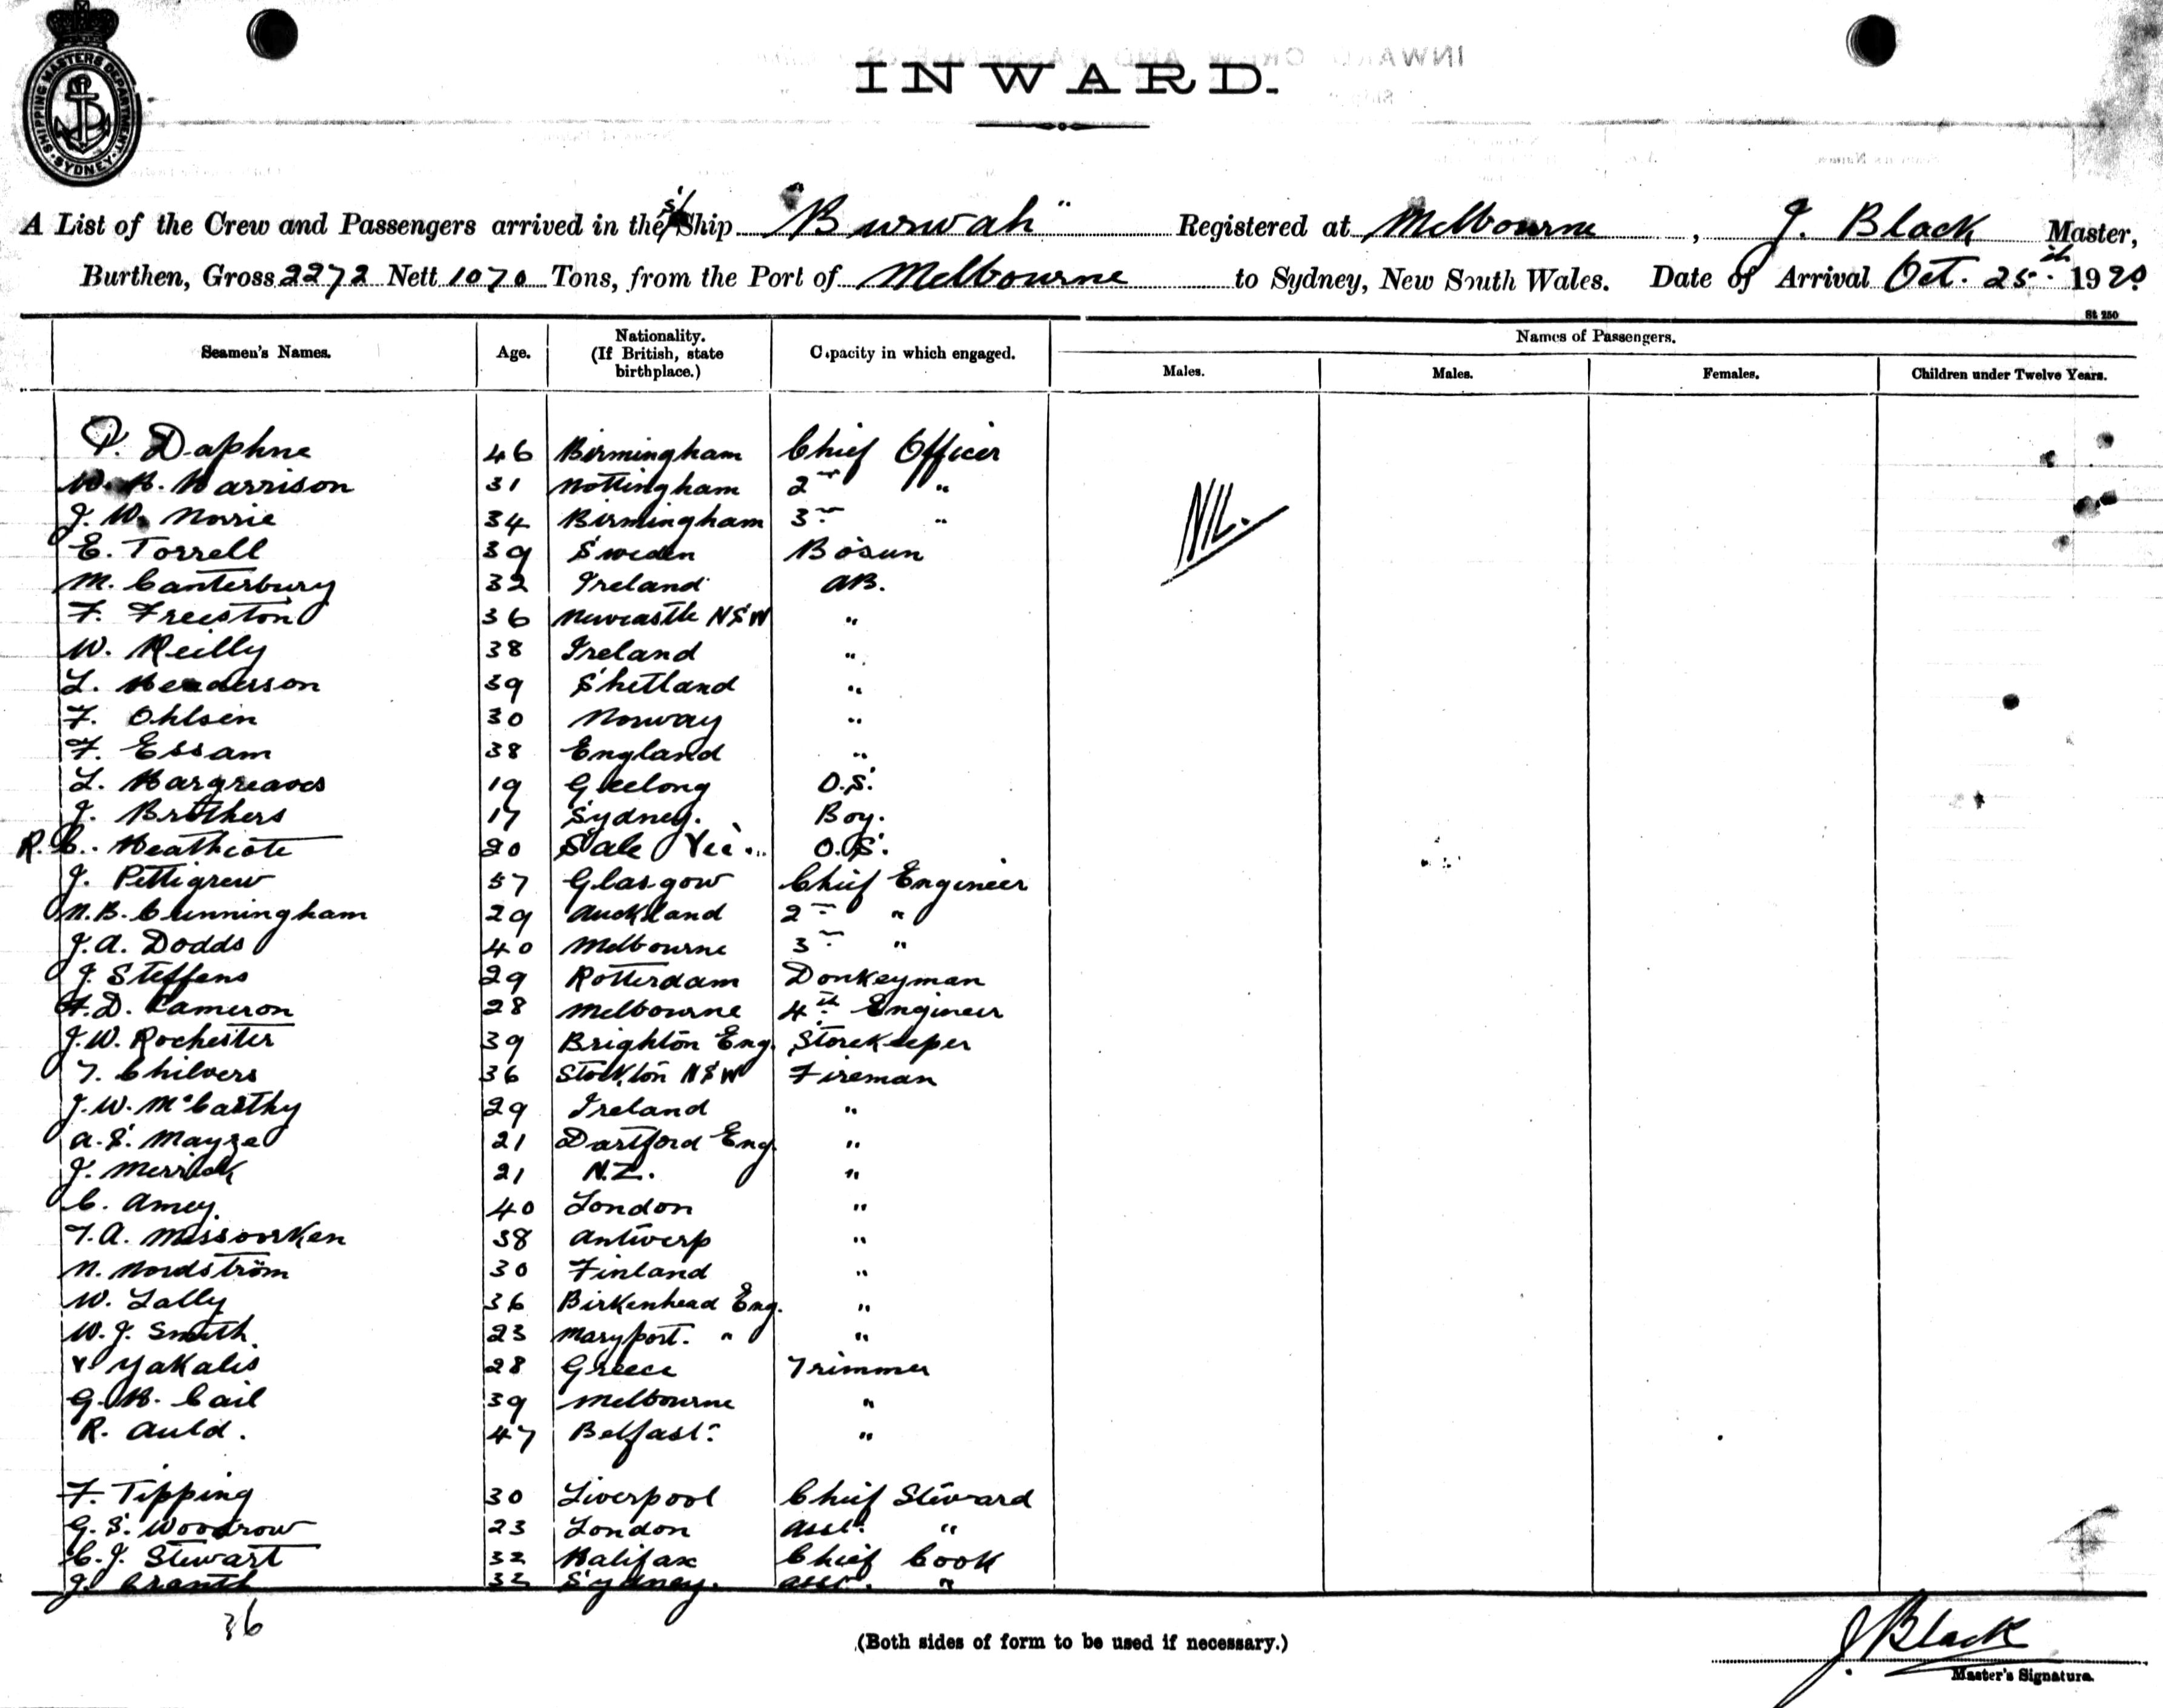 SHIPPING MASTERS DEPARTMENT SYDNEY
INWARD.
A List of the Crew and Passengers arrived in the s/ Ship "Burwah" Registered at Melbourne, J. Black Master,
Burthen, Gross 2272 Nett 1070 Tons, from the Port of Melbourne to Sydney, New South Wales. Date of Arrival Oct. 25th 1920
St 250
Seamen's Names. Age. Nationality. (If British, state birthplace.) Capacity in which engaged. Names of Passengers.
Males. Males. Females. Children under Twelve Years.
P. Daphne 46 Birmingham Chief Officer
W. H. Harrison 31 Nottingham 2nd "
J. W. Norrie 34 Birmingham 3rd "
NIL.
E. Torrell 39 Sweden Bosun
M. Canterbury 32 Ireland AB.
F. Freeston 36 Newcastle NSW "
W. Reilly 38 Ireland "
L. Henderson 39 Shetland "
F. Ohlsen 30 Norway "
F. Essam 38 England "
L. Hargreaves 19 Geelong O.S.
J. Brothers 17 Sydney. Boy.
R. C. Heathcote 20 Sale Vic... O.S.
J. Pettigrew 57 Glasgow Chief Engineer
N.B. Cunningham 29 Auckland 2nd "
J.A. Dodds 40 Melbourne 3rd "
J. Steffens 29 Rotterdam Donkeyman
D. Cameron 28 Melbourne 4th Engineer
J.W. Rochester 39 Brighton Eng. Storekeeper
T. Chilvers 36 Stockton NSW Fireman
J.W. McCarthy 29 Ireland "
A.S. Mayze 21 Dartford Eng. "
J. Merrick 21 N.Z. "
C. Amey. 40 London "
T.A. Missoorken 38 Antwerp "
N. Nordström 30 Finland "
W. Lally 36 Birkenhead Eng. "
W.J. Smith. 23 Maryport. " "
Yakalis 28 Greece Trimmer
G.H. Cail 39 Melbourne "
R. Auld. 47 Belfast. "
F. Tipping 30 Liverpool Chief Steward
G.S. Woodrow 23 London Asst. "
C.J. Stewart 32 Halifax Chief Cook
J. 32 Sydney. Asst. "
36
(Both sides of form to be used if necessary.)
J Black
Master's Signature.